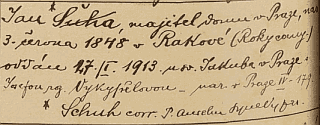 Jan *Šuha, majitel domu v Praze, nar.
3. června 1848 v Rakové (Rokycany)
oddán 27/I. 1913 u sv. Jakuba v Praze s
Josefou Vykyšalovou nar. v Praze IV - 179
*Schuh corr. P. Anselm